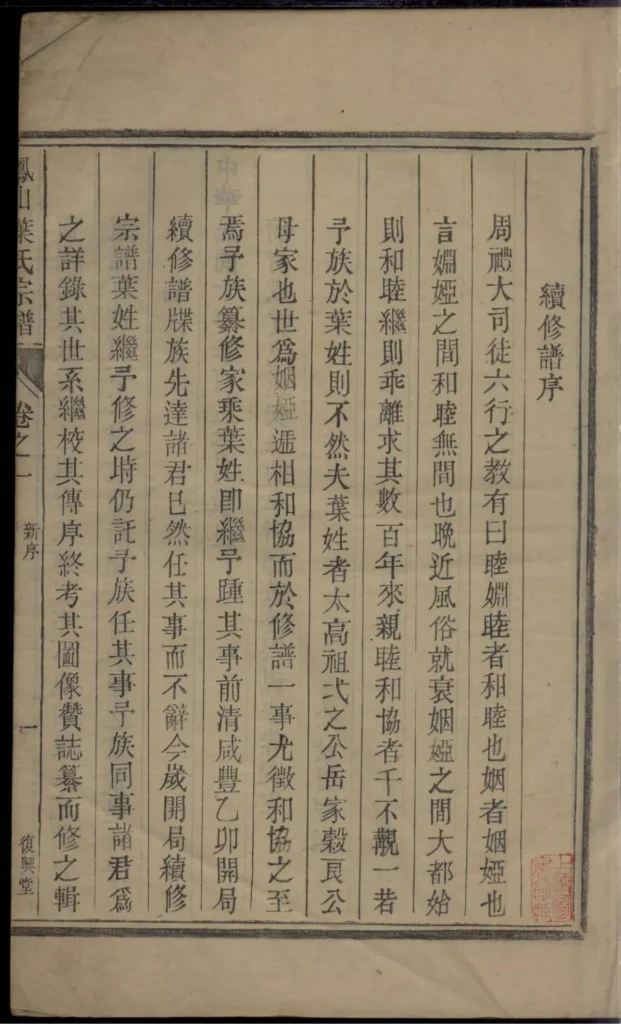 續修譜序
周禮大司徒六行之教有曰睦婣睦者和睦也姻者姻婭也
言婣婭之間和睦無間也晩近風俗就衰姻婭之間大都始
則和睦繼則乖離求其數百年來親睦和協者千不覯一若
予族於葉姓則不然夫葉姓者太高祖弍之公岳家穀良公
母家也世爲姻婭遞相和協而於修譜一事尤徵和協之至
焉予族纂修家乘葉姓卽繼予踵其事前清咸豐乙卯開局
續修譜牒族先達諸君已然任其事而不辭今歲開局續修
宗譜葉姓繼予修之時仍託予族任其事予族同事諸君爲
之詳錄其世系繼校其傳序終考其圖像贊誌纂而修之輯
鳳山葉氏宗譜 卷之一 新序 一 復興堂